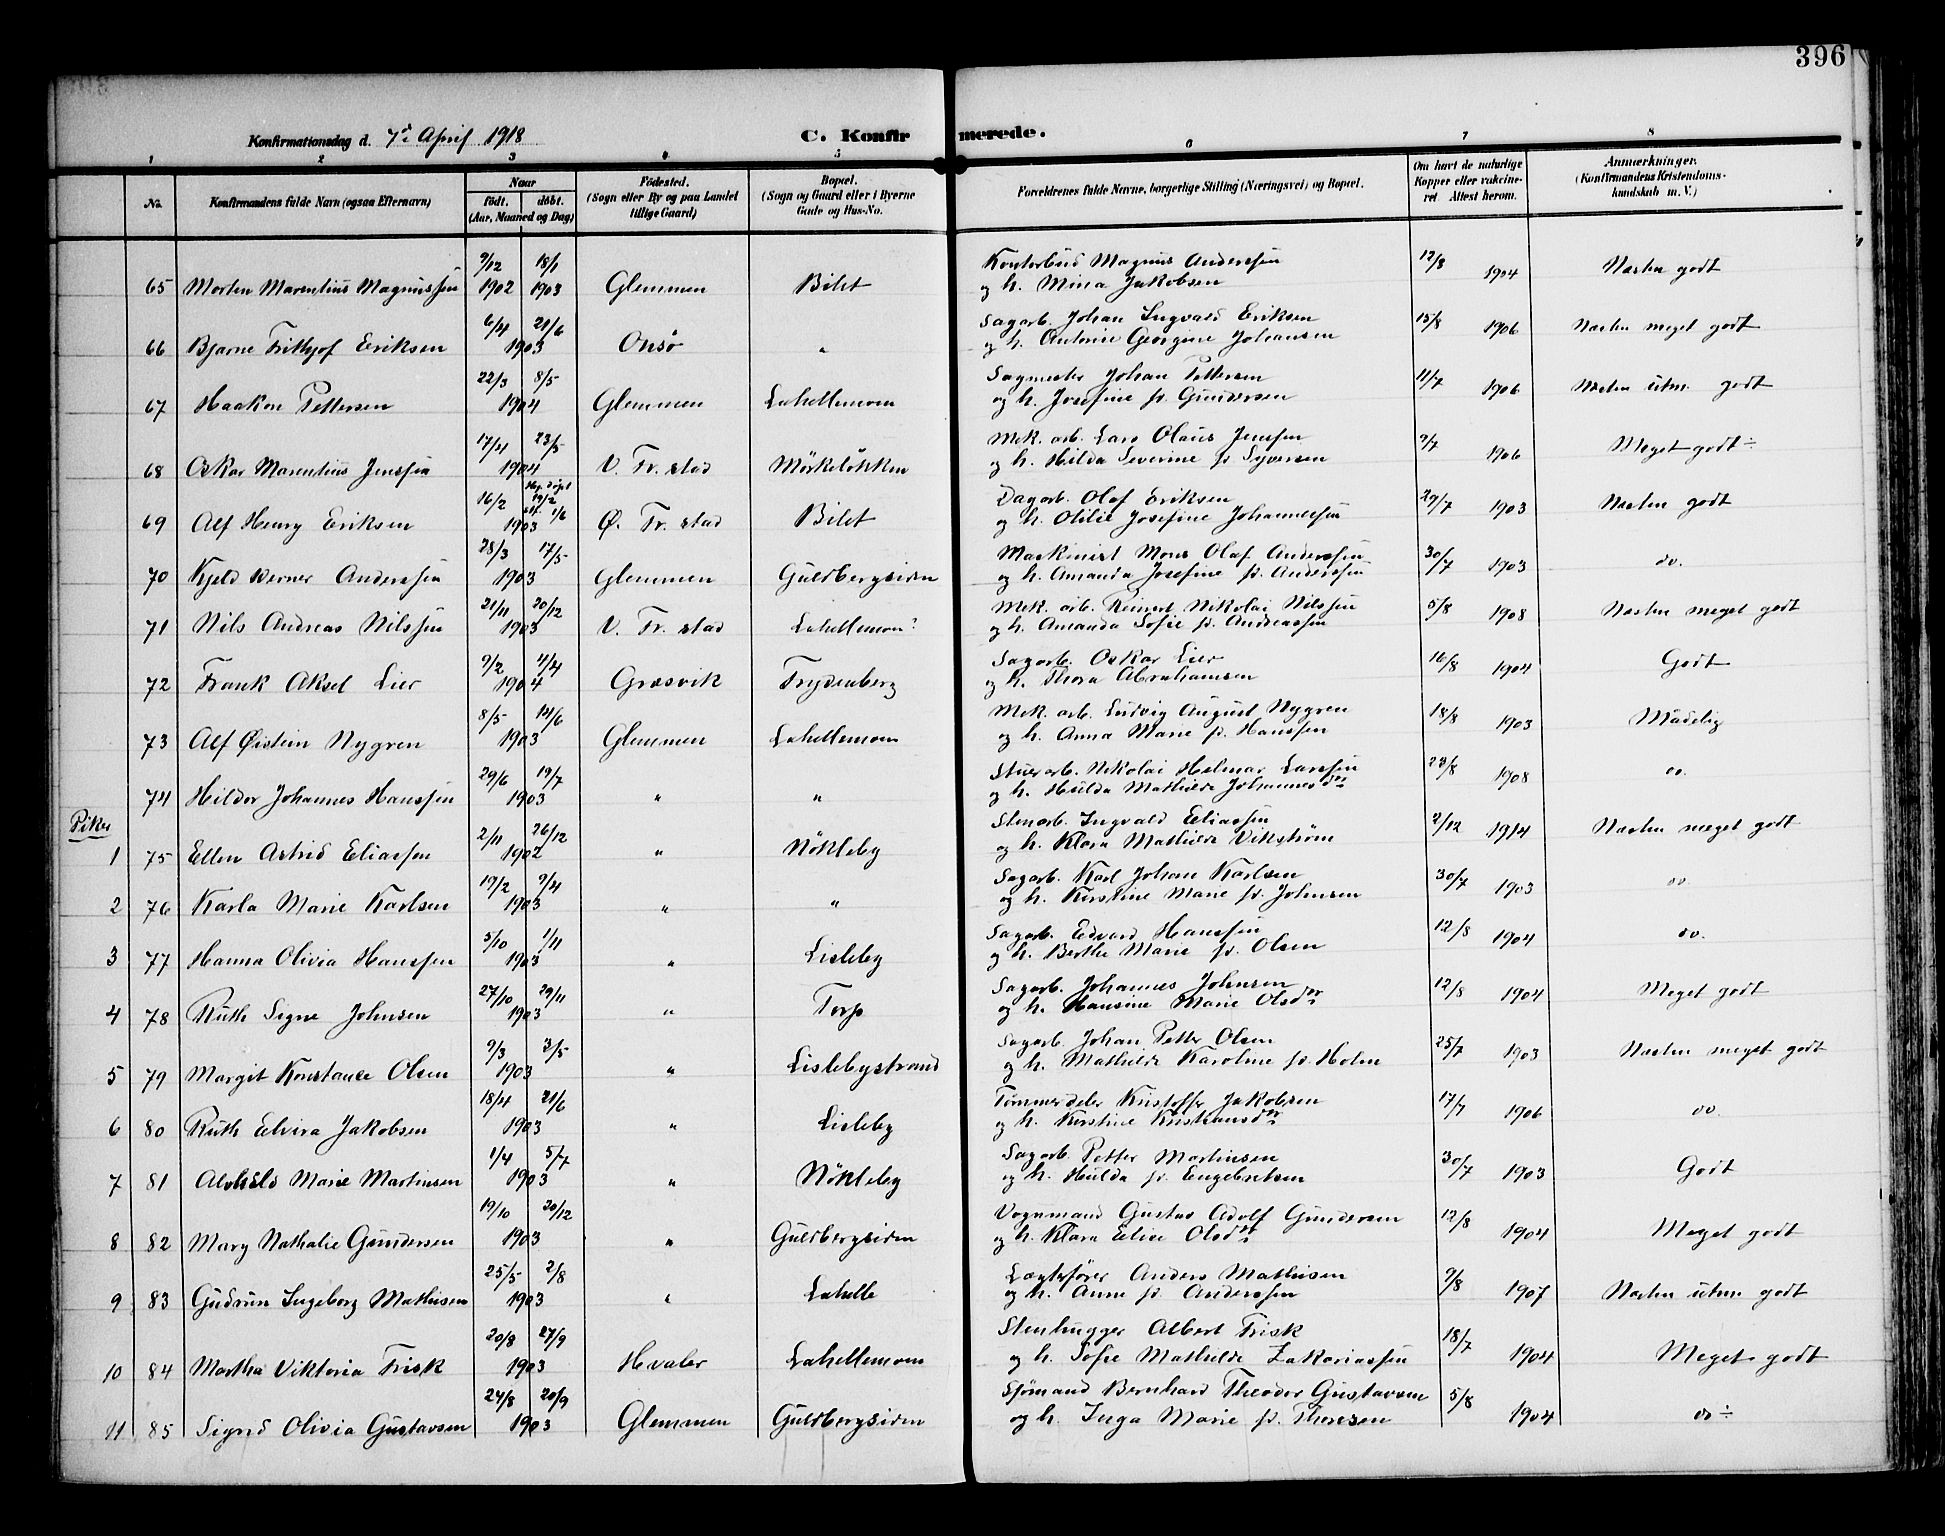 396
Konfirmationsdag d. 7de April 1918
C. Konfirmerede.
1 2 3 4 5 6 7 8
No. Konfirmandens fulde Navn (ogsaa Efternavn) Naar født. døbt. (Aar, Maaned og Dag) Fødested. (Sogn eller By og paa Landet tillige Gaard) Bopæl. (Sogn og Gaard eller i Byerne Gade og Hus-No. Forældrenes fulde Navne, borgerlige Stilling (Næringsvei) og Bopæl. Om havt de naturlige Kopper eller vakcineret Attest herom. Anmærkninger. (Konfirmandens Kristendomskundskab m. V.)
9/12 18/1 Kontorbud Magnus Anderssen 12/8
65 Morten Marentius Magnussen 1902 1903 Glemmen Bilet og h. Mina Jakobsen 1904 Næsten godt
6/4 21/6 Sagarb. Johan Ingvald Eriksen 15/8
66 Bjarne Frithjof Eriksen 1903 Onsø " og h. Antonie Georgine Johansen 1906 Næsten meget godt
22/3 8/5 Sagmester Johan Pettersen 11/7
67 Haakon Pettersen 1904 Glemmen Lahellemoen og h. Josefine f. Gundersen 1906 Næsten utm. godt
17/4 23/5 Mek. arb. Lars Olaus Jenssen 9/7
68 Oskar Marentius Jenssen 1904 V. Fr. stad Mørkeløkken og h. Hilda Severine f. Syversen 1906 Meget godt ÷
16/2 19/2 1/6 Dagarb. Olaf Eriksen 29/7
69 Alf Henry Eriksen 1903 Ø. Fr. stad Bilet og h. Otilie Josefine Johannessen 1903 Næsten godt
28/3 17/5 Maskinist Mons Olaf Anderssen 30/7
70 Kjeld Berner Anderssen 1903 Glemmen Guldbergsiden og h. Amanda Josefine f. Anderssen 1903 do.
21/11 20/12 Mek. arb. Reinert Nikolai Nilssen 5/8
71 Nils Andreas Nilssen 1903 V. Fr. stad Lahellemoen og h. Amanda Sofie f. Andreassen 1908 Næsten meget godt
9/2 4/4 Sagarb. Oskar Lier 16/8
72 Frank Aksel Lier 1904 Græsvik Trydenberg og h. Thora Abrahamsen 1904 Godt
8/5 14/6 Mek. arb. Ludvig August Nygren 18/8
73 Alf Øistein Nygren 1903 Glemmen Lahellemoen og h. Anna Marie f. Hanssen 1903 Mådelig
29/6 19/7 Stuerarb. Nikolai Helmar Larssen 23/8
74 Hildor Johannes Hanssen 1903 " " og h. Hulda Mathilde Johannesdtr 1908 do.
Piker
2/11 26/12 Stenarb. Ingvald Eliassen 2/12
1 75 Ellen Astrid Eliassen 1902 " Nøkleby og h. Klara Mathilde Vikstrøm 1914 Næsten meget godt
19/2 9/4 Sagarb. Karl Johan Karlsen 30/7
2 76 Karla Marie Karlsen 1903 " " og h. Kirstine Marie f. Johnsen 1903 do.
5/10 1/11 Sagarb. Edvard Hanssen 12/8
3 77 Hanna Olivia Hanssen 1903 " Lisleby og h. Berthe Marie f. Olsen 1904 do.
27/10 29/11 Sagarb. Johannes Johnsen 12/8
4 78 Ruth Signe Johnsen 1903 " Torp og h. Hansine Marie Olsdtr 1904 Meget godt
9/3 3/5 Sagarb. Johan Petter Olsen 25/7
5 79 Margit Konstance Olsen 1903 " Lislebystrand og h. Mathilde Karoline f. Holm 1903 Næsten meget godt
18/4 21/6 Tømmerdeler Kristoffer Jakobsen 17/7
6 80 Ruth Elvira Jakobsen 1903 " Lisleby og h. Kirstine Kristiansdtr 1906 do.
1/4 5/7 Sagarb. Petter Martinsen 30/7
7 81 Alvhild Marie Martinsen 1903 " Nøkleby og h. Hulda f. Engebretsen 1903 Godt
19/10 20/12 Vognmand Gustav Adolf Gundersen 12/8
8 82 Mary Nathalie Gundersen 1903 " Guldbergsiden og h. Klara Elise Olsdtr 1904 Meget godt
25/5 2/8 Lægtefører Anders Mathisen 9/8
9 83 Gudrun Ingeborg Mathisen 1903 " Lahelle og h. Anne f. Anderssen 1907 Næsten utm. godt
20/8 27/9 Stenhugger Albert Frisk 18/7
10 84 Martha Viktoria Frisk 1903 Hvaler Lahellemoen og h. Sofie Mathilde Zakariassen 1904 Meget godt
24/8 20/9 Sjømand Bernhard Theodor Gustavsen 5/8
11 85 Sigrid Olivia Gustavsen 1903 Glemmen Guldbergsiden og h. Inga Marie f. Thoresen 1904 do ÷